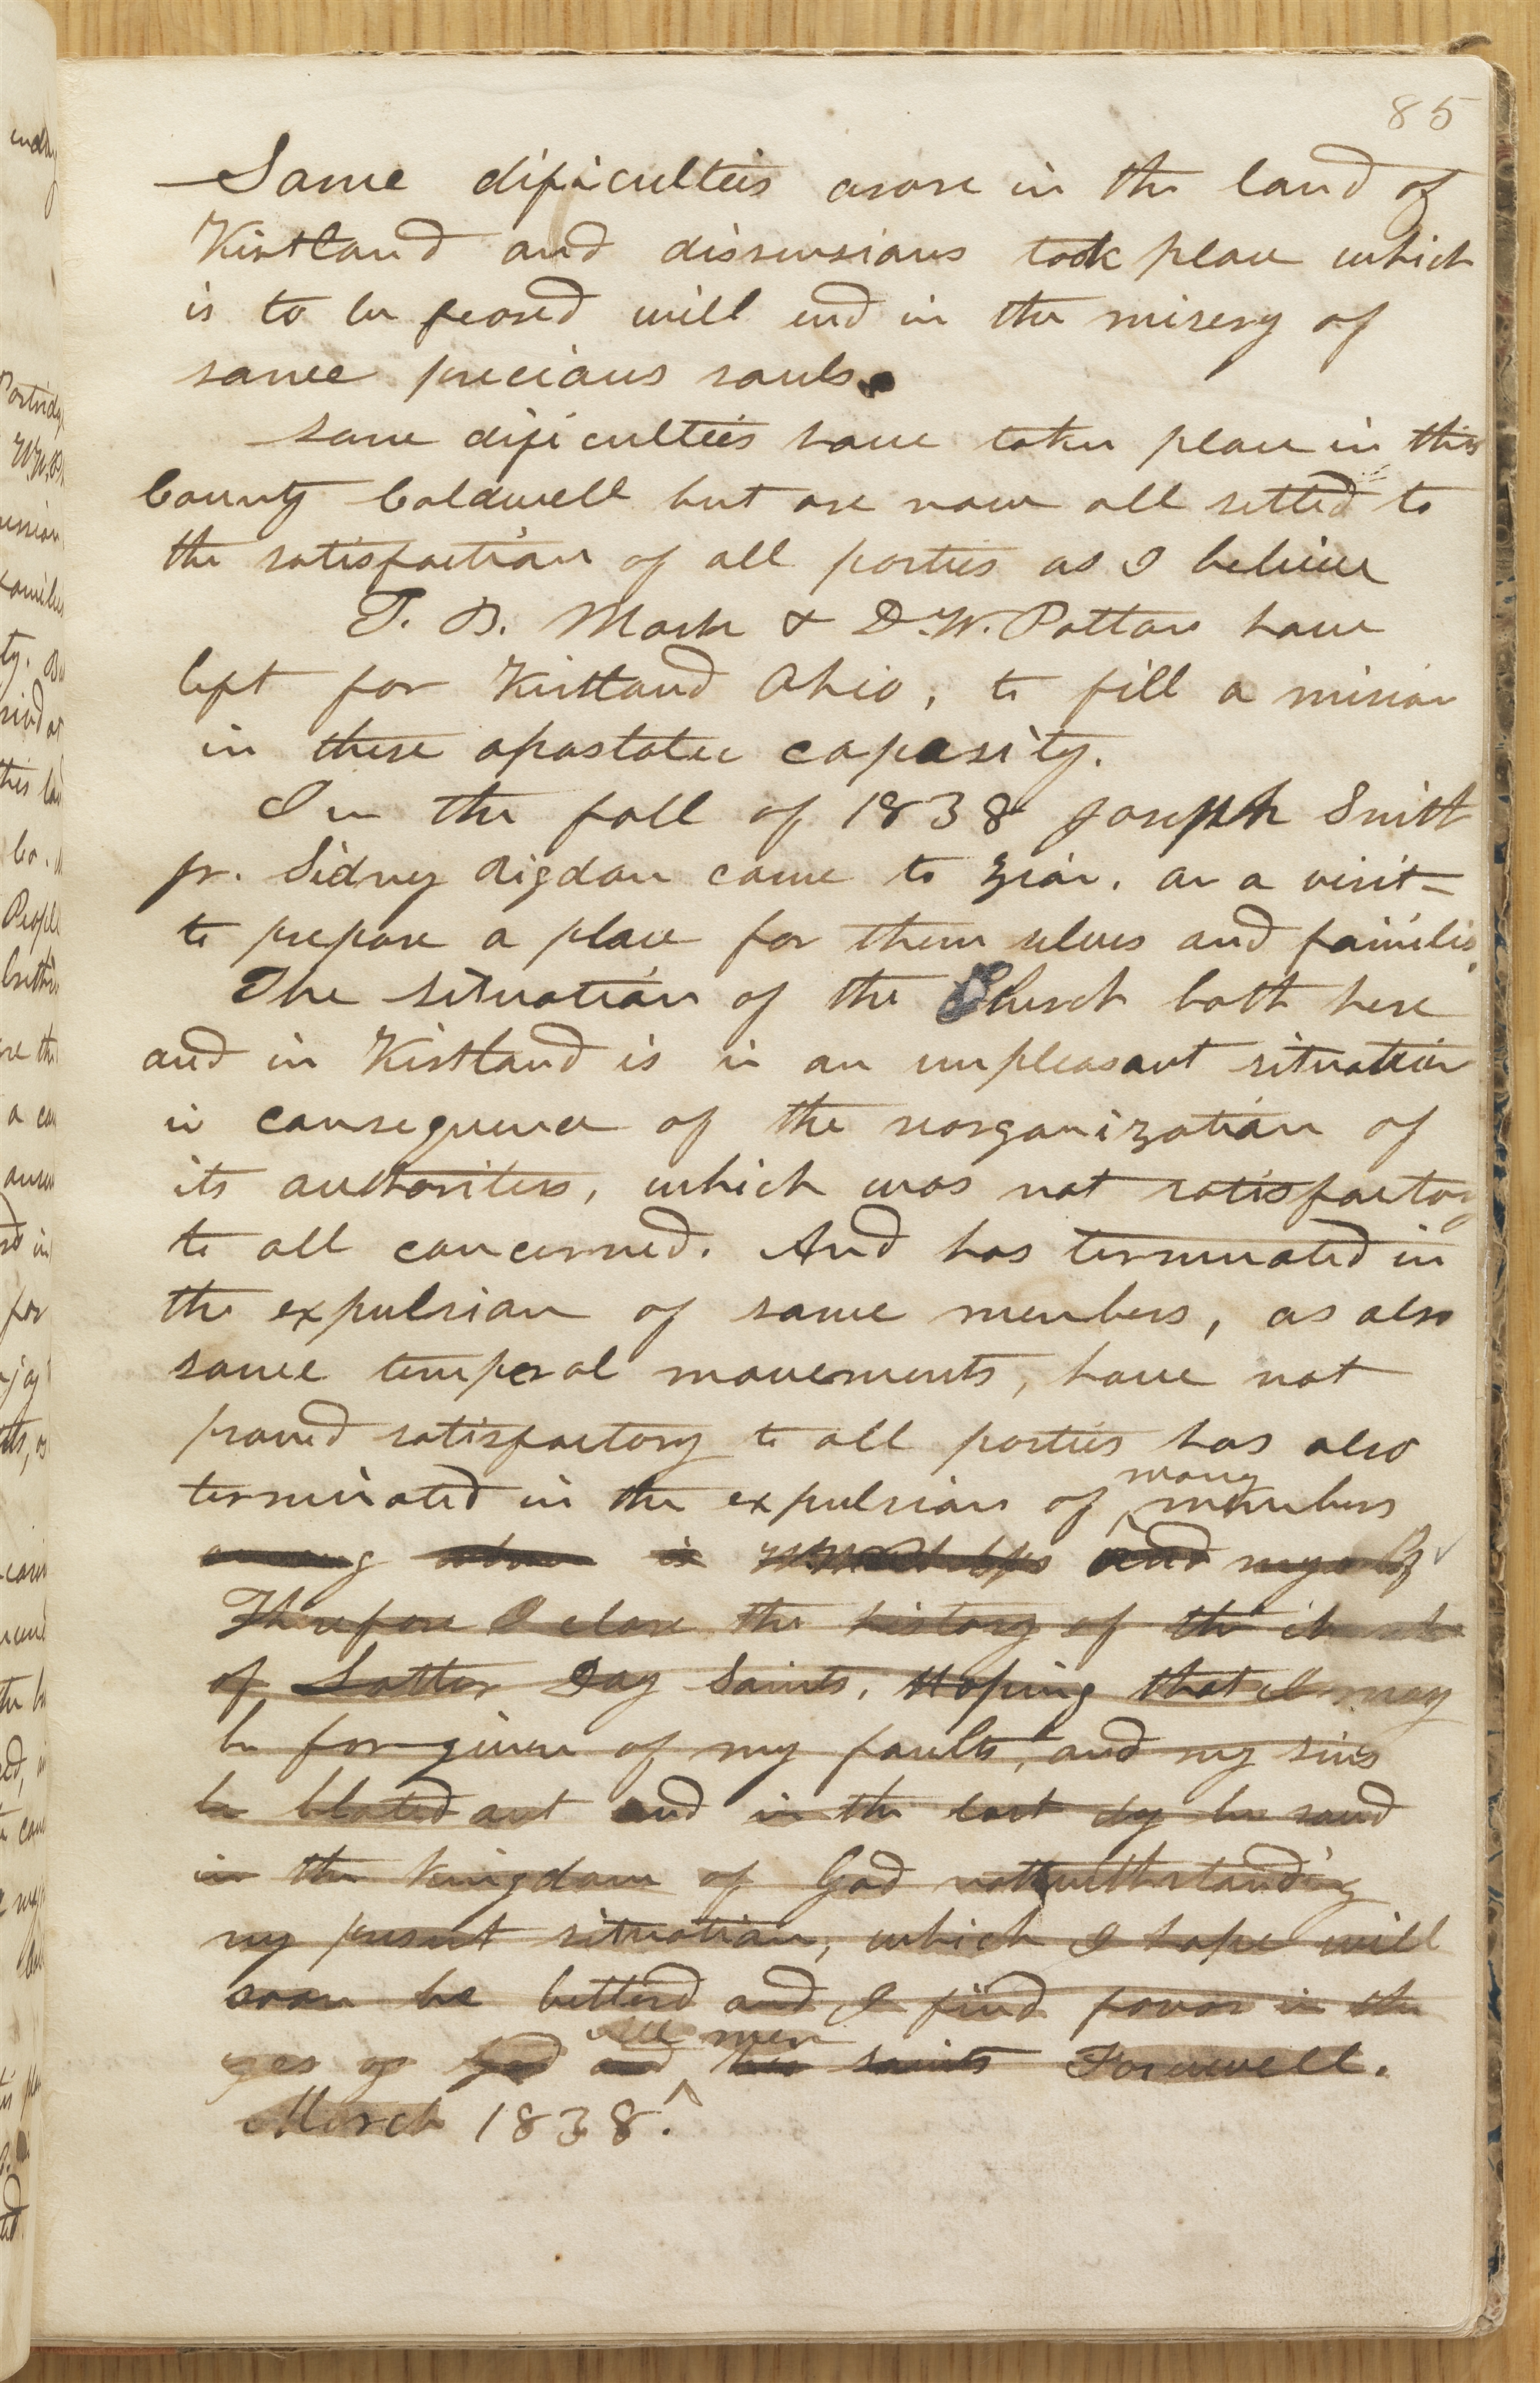 85
Some dificulteis arose in the land of
Kirtland and dissensions took place which
is to be feared will end in the misery of
some precious souls.
some dificulteis have taken place in this
County Caldwell but are now all settled to
the satisfaction of all parties as I believe
T. B. Marsh & D. W. Patten have
left for Kirtland Ohio, to fill a mision
in there apostolic capasity.
In the fall of 1838 Joseph Smith
jr. Sidney Rigdon came to Zion. on a visit-
to prepare a place for them selves and families.
The situation of the Church both here
and in Kirtland is in an unpleasant situation
in consequence of the reorganization of
its authorities, which was not satisfactory
to all concerned. And has terminated in
the expulsion of some members, as also
some temperal movements, have not
proved satisfactory to all parties has also
terminated in the expulsion of many members
among whom is W. W. Phelps and myself
Therefore I close the history of the church
of Latter Day Saints, Hoping that I may
be forgiven of my faults, and my sins
be bloted out and in the last dy be saved
in the kingdom of God notwithstanding
my present situation, which I hope will
soon be betterd and I find favor in the
yes of God and All men his saints Farewell.
March 1838.